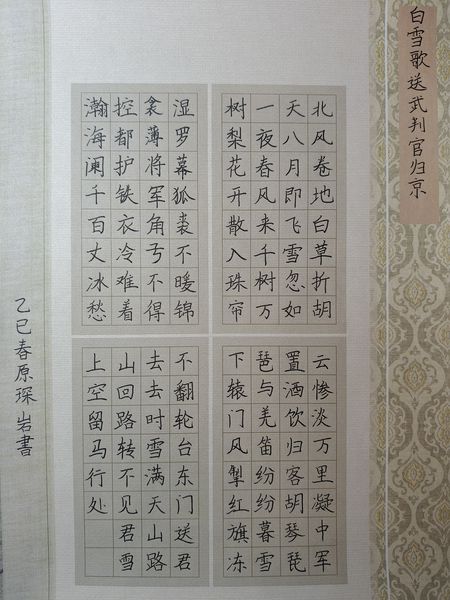 白雪歌送武判官归京
北风卷地白草折胡
天八月即飞雪忽如
一夜春风来千树万
树梨花开散入珠帘
湿罗幕狐裘不暖锦
衾薄将军角弓不得
控都护铁衣冷难着
瀚海阑千百丈冰愁
云惨淡万里凝中军
置酒饮归客胡琴琵
琶与羌笛纷纷暮雪
下辕门风掣红旗冻
不翻轮台东门送君
去去时雪满天山路
山回路转不见君雪
上空留马行处
乙巳春原琛岩書